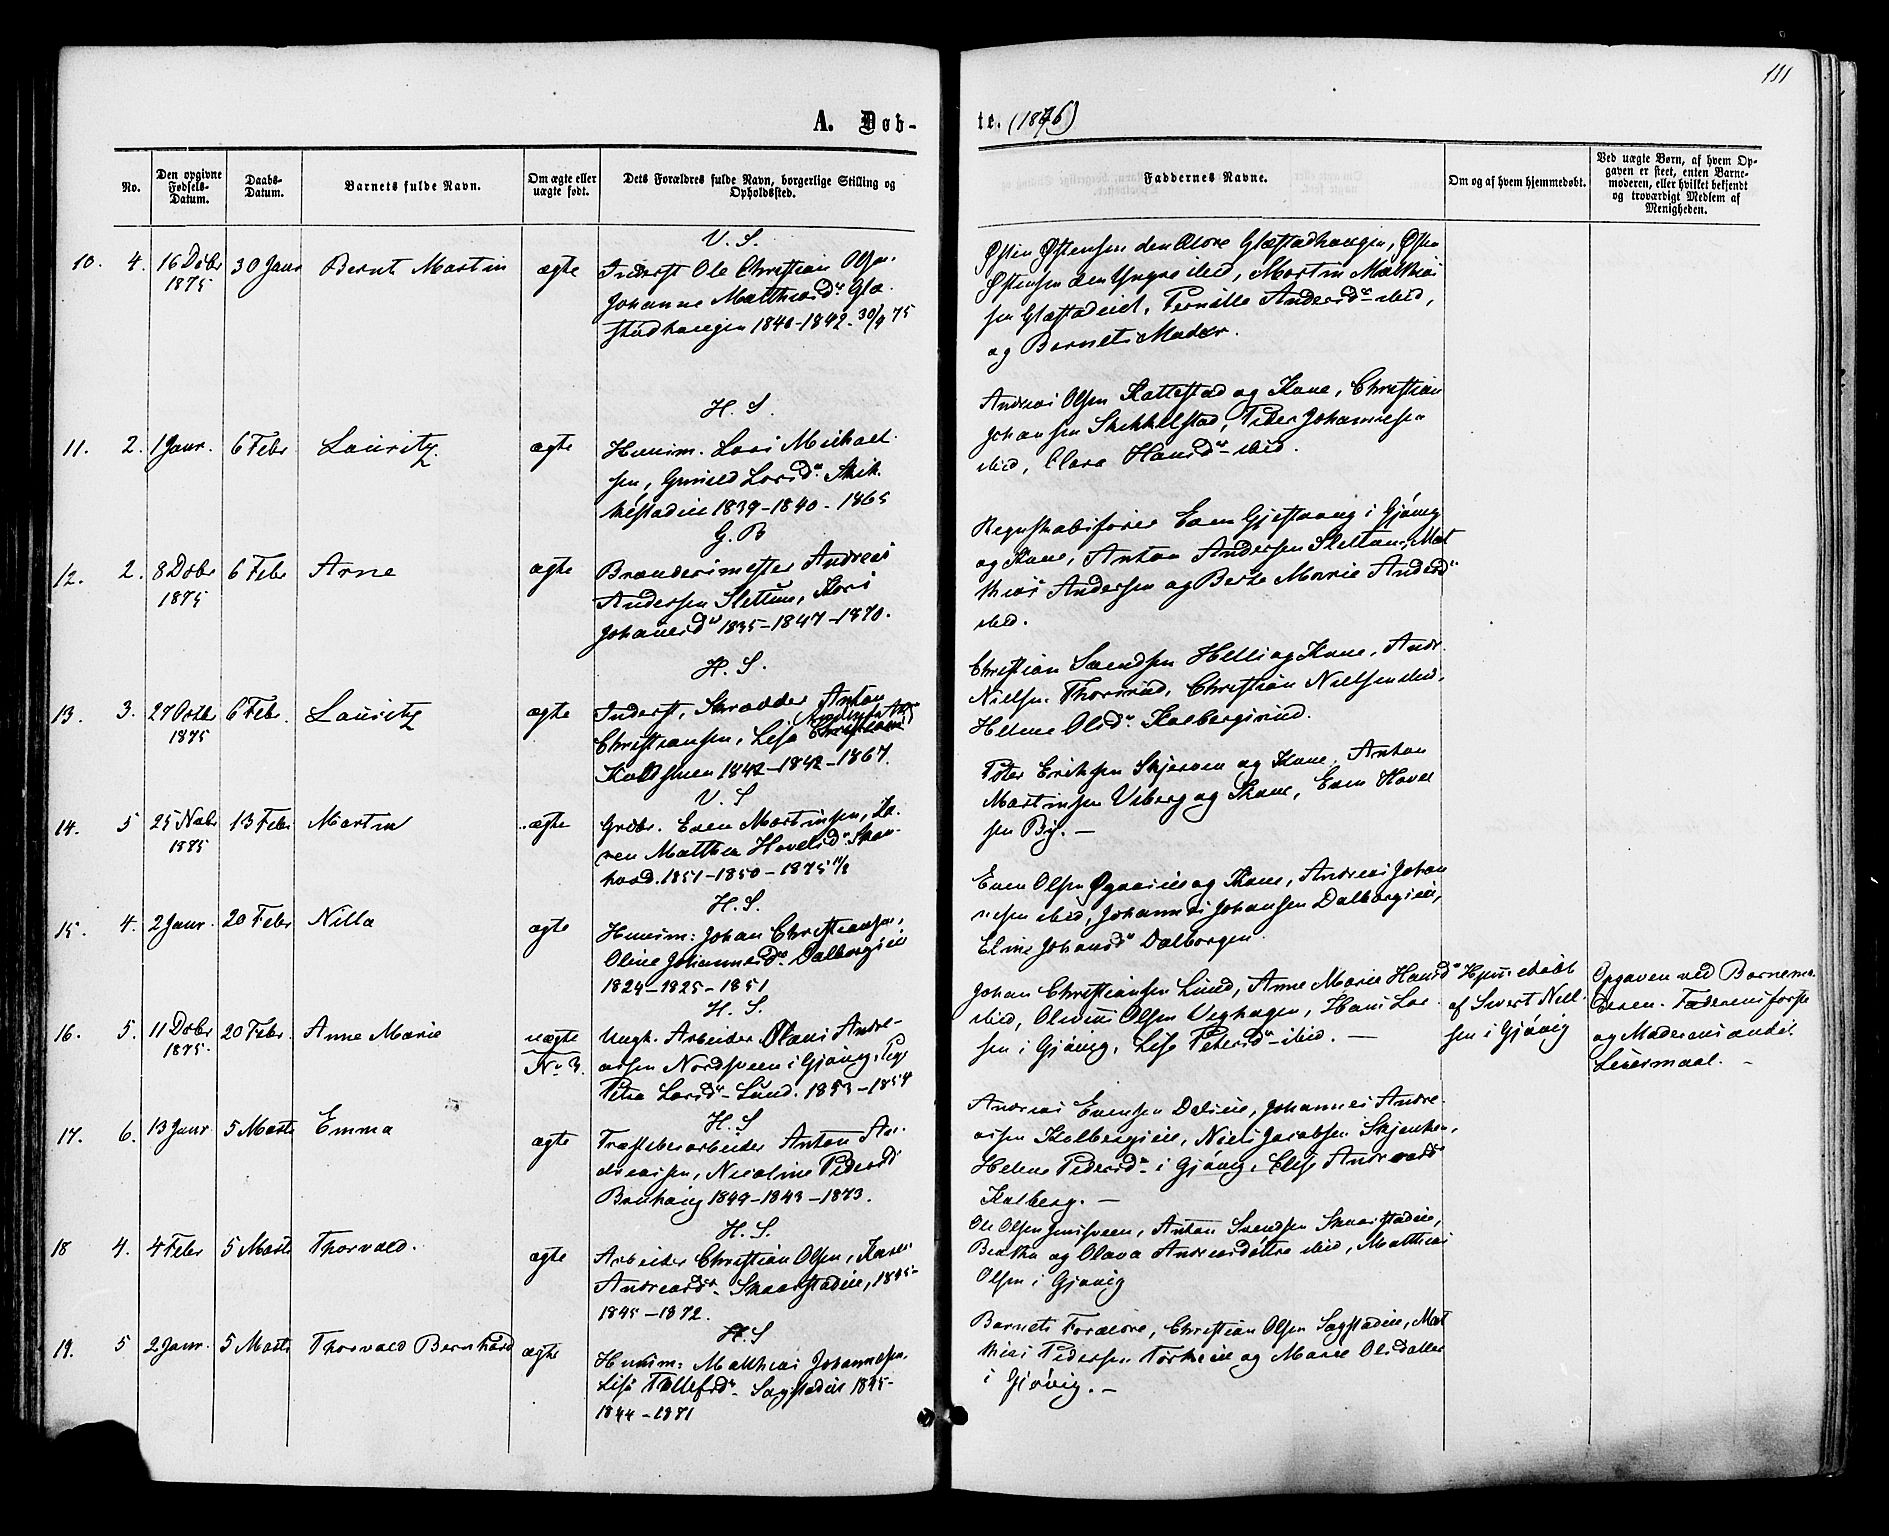 111
A. Døb-
te. (1876)
No.
Den opgivne Fødsels-Datum.
Daabs-Datum.
Barnets fulde Navn.
Om ægte eller uægte født.
Dets Forældres fulde Navn, borgerlige Stilling og Opholdssted.
Faddernes Navne.
Om og af hvem hjemmedøbt.
Ved uægte Børn, af hvem Op-
gaven er skeet, enten Barne-
moderen, eller hvilket bekjendt
og troværdigt Medlem af
Menigheden.
V. S.
10. 4. 16 Dcbr 1875 30 Janr Bernt Martin ægte
Inderst Ole Christian Olsen,
Johanne Matthiasd. Glæ-
stadhaugen 1840-1842-30/9 75
Østen Østensen den Ældre Glæstadhaugen, Østen
Østensen den Yngre ibid, Martin Mathias
sen Glæstadeiet, Pernille Andersd. ibid,
og Barnets Moder.
H. S.
11. 2. 1 Janr. 6 Febr Lauritz ægte
Huusm. Lars Michael-
sen, Gunild Larsd. Skik-
kelstadeie 1839-1840-1865
Andreas Olsen Kattestad og Kone, Christian
Johansen Skikkelstad, Peder Johannesen
ibid, Clara Hansd. ibid.
G. B
12. 2. 8 Dcbr 1875 6 Febr Arne ægte
Brænderimester Andreas
Andersen Slettum, Kari
Johansd. 1835-1847-1870.
Regnskabsfører Even Gjestvang i Gjøvig
og Kone, Anton Andersen Slettum, Mat
thias Andersen og Berte Marie Andersd.
ibid.
H. S.
13. 3. 27 Octbr 1875 6 Febr. Lauritz ægte
Inderst, Skrædder Anton
Christiansen, Lise
1842-1842-1867.
Christian Svendsen Helli og Kone, Andr.
Nielsen Thorsrud, Christian Nielsen ibid,
Helene Olsd. Kalbergsrud.
V. S
14. 5 25 Novbr 1875 13 Febr Martin ægte
Grdbr. Even Martinsen, Ka-
ren Matthea Hovelsd.
1851-1850-1875
Peter Eriksen Skjerven og Kone, Anton
Martinsen Viberg og Kone, Even Hovel
sen By. —
H. S.
15. 4. 2 Janr. 20 Febr Nilla ægte
Huusm: Johan Christiansen,
Oline Johannesd. Dalborgeie
1824-1825-1851
Even Olsen og Kone, Andreas Johan
nesen ibid, Johannes Johansen Dalborgeie,
Eline Johansd. Dalborgen.
H. S.
16. 5. 11 Dcbr 1875. 20 Febr Anne Marie uægte No 3.
Ungk. Arbeider Olaus Andre-
assen Nordsveen i Gjøvig, Pige
Petra Larsd. Lund. 1853-1854
Johan Christiansen Lund, Anne Marie Hansd.
ibid, Olivius Olsen Veghagen, Hans Lar
sen i Gjøvig, Lise Petersd. ibid. —
Hjemmedøbt
af Sivert Niel-
sen i Gjøvig
Opgaven ved Barnemo-
deren. Faderens første
og Moderens andet
Leiermaal. -
H. S
17. 6. 13 Janr 5 Marts Emma ægte
Træskoarbeider Anton An-
dreassen, Nicoline Pedersd.
Brohaug 1849-1843-1873.
Andreas Evensen Dalseie, Johannes Andre-
assen Kalbergseie, Niels Jacobsen Skjenken,
Helene Pedersd. i Gjøvig, Elise Andreasd.
Kalberg. —
H. S.
18 4. 4 Febr 5 Marts Thorvald. ægte
Arbeider Christian Olsen, Karen
Andreasd. Skaarstadeie, 1845-
1845-1872.
Ole Olsen Jensveen, Anton Svendsen Skaarstadeie,
Beathe og Olava Andreasdøttre ibid, Matthias
Olsen i Gjøvig
H. S
19. 5 2 Janr. 5 Marts Thorvald Bernhard ægte
Huusm: Matthias Johannesen,
Lise Tollefsd. Sagstadeie 1845-
1844-1871
Barnets Forældre, Christian Olsen Sagstadeie, Mat
thias Pedersen og Marie Olsdatter
i Gjøvig. —